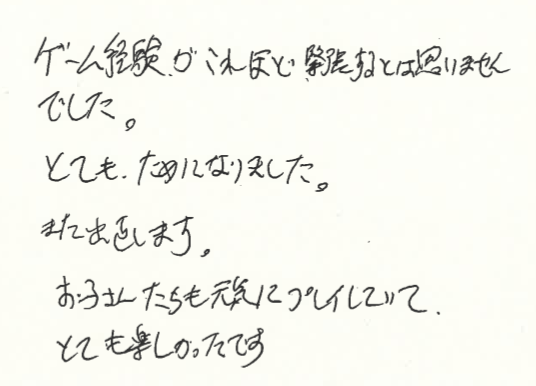 ゲーム経験がこれほど緊張するとは思いません
でした。
とても、ためになりました。
また出直します。
お子さんたちも元気にプレイしていて、
とても楽しかったです